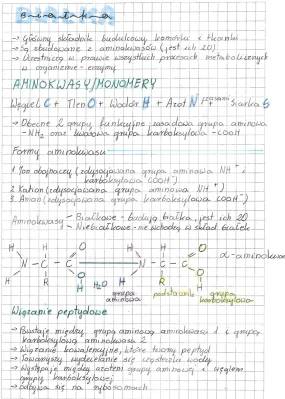 Białka
→ Główny składnik budulcowy komórki i tkanki
→ Są zbudowane z aminokwasów (jest ich 20)
→ Uczestniczą w prawie wszystkich procesach metabolicznych
w organizmie - enzymy
AMINOKWASY/MONOMERY
Węgiel C + Tlen O + Wodór H + Azot N + czasami Siarka S
→ Obecne 2 grupy funkcyjne zasadowa grupa aminowa
-NH₂ oraz kwasowa grupa karboksylowa -COOH
Formy aminokwasu
1 Jon obojnaczy (zdysocjowana grupa aminowa NH⁺ i
karboksylowa COO⁻)
2 Kation (zdysocjowana grupa aminowa NH⁺)
3 Anion (zdysocjowana grupa karboksylowa COO⁻)
Aminokwasy - Białkowe - budują białka, jest ich 20
Niebiałkowe - nie wchodzą w skład białek
H H O H H O
N - C - C N - C - C α-aminokwas
H R O H H₂O H R O H
grupa aminowa podstawnik grupa karboksylowa
Wiązanie peptydowe
→ Powstaje między grupą aminową aminokwasu 1 i grupą
karboksylową aminokwasu 2
→ Wiązanie kowalencyjne, które tworzy peptyd
→ Towarzyszy wydzielanie się cząsteczki wody
→ Występuje między azotem grupy aminowej i węglem
grupy karboksylowej
→ odbywa się na rybosomach